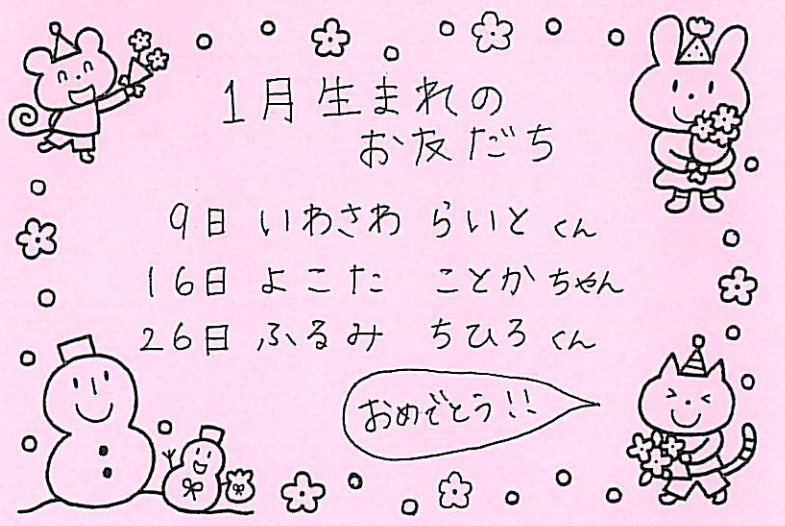 1月生まれの
お友だち
9日 いわさわ らいと くん
16日 よこた ことか ちゃん
26日 ふるみ ちひろ くん
おめでとう!!